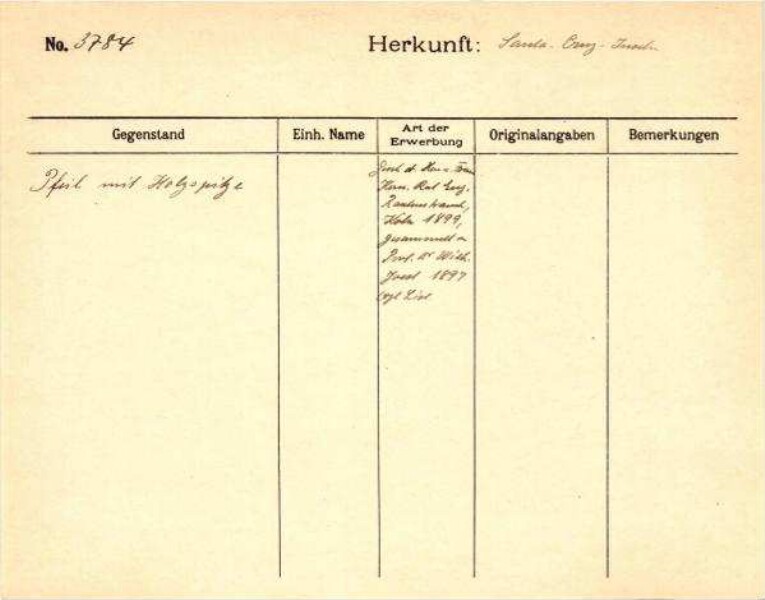 No. 3784
Herkunft: Santa. Cruz-Inseln
Gegenstand
Einh. Name
Art der
Erwerbung
Originalangaben
Bemerkungen
Pfeil mit Holzspitze
d.
Kom. Rat Eug.
Rautenstrauch,
Köln 1899,
gesammelt v
Prof. Dr Wilh.
Joest 1897